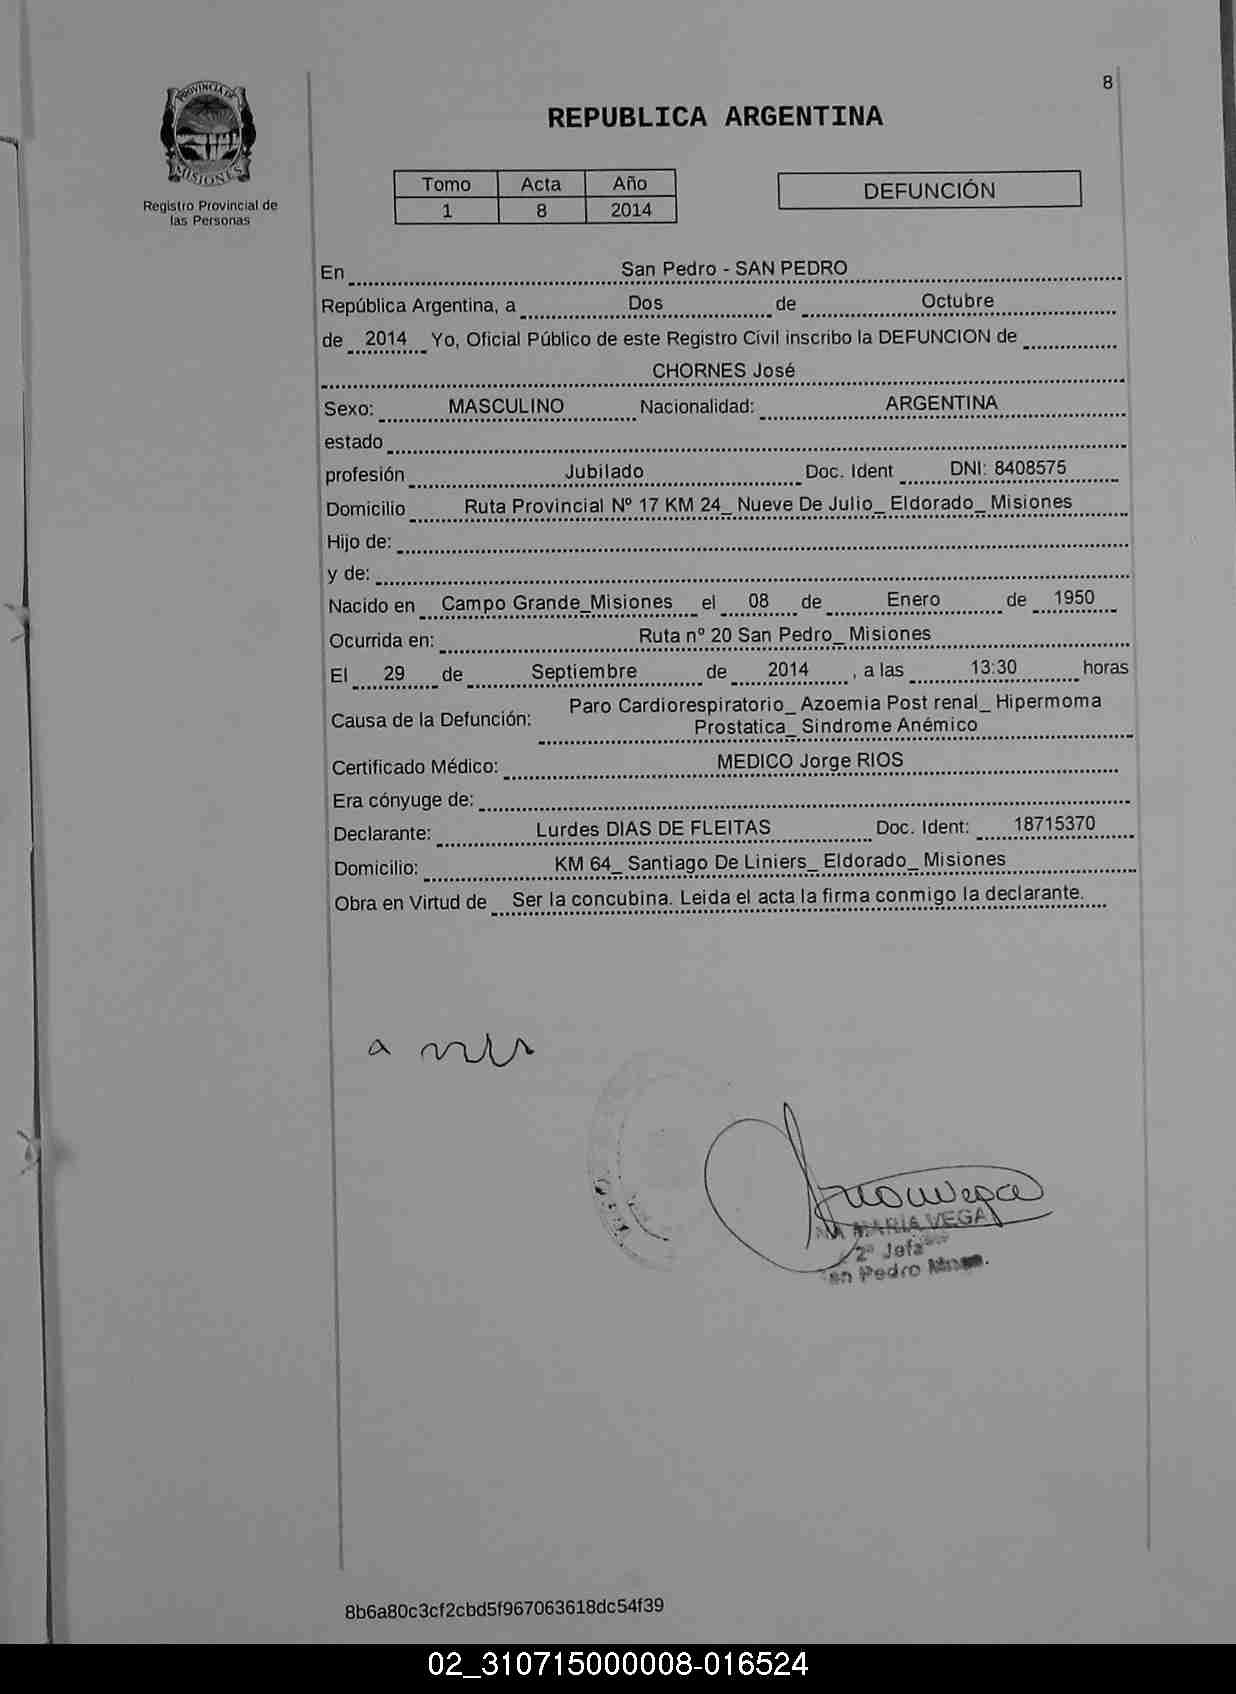 8
PROVINCIA DE
MISIONES
Registro Provincial de
las Personas
REPUBLICA ARGENTINA
Tomo Acta Año
1 8 2014
DEFUNCIÓN
En San Pedro - SAN PEDRO
República Argentina, a Dos de Octubre
de 2014 Yo, Oficial Público de este Registro Civil inscribo la DEFUNCION de
CHORNES José
Sexo: MASCULINO Nacionalidad: ARGENTINA
estado
profesión Jubilado Doc. Ident DNI: 8408575
Domicilio Ruta Provincial Nº 17 KM 24_ Nueve De Julio_ Eldorado_ Misiones
Hijo de:
y de:
Nacido en Campo Grande_Misiones el 08 de Enero de 1950
Ocurrida en: Ruta nº 20 San Pedro_ Misiones
El 29 de Septiembre de 2014 , a las 13:30 horas
Causa de la Defunción: Paro Cardiorespiratorio_ Azoemia Post renal_ Hipermoma
Prostatica_ Sindrome Anémico
Certificado Médico: MEDICO Jorge RIOS
Era cónyuge de:
Declarante: Lurdes DIAS DE FLEITAS Doc. Ident: 18715370
Domicilio: KM 64_ Santiago De Liniers_ Eldorado_ Misiones
Obra en Virtud de Ser la concubina. Leida el acta la firma conmigo la declarante.
MARIA VEGA
2ª Jefa
Pedro
8b6a80c3cf2cbd5f967063618dc54f39
02_310715000008-016524